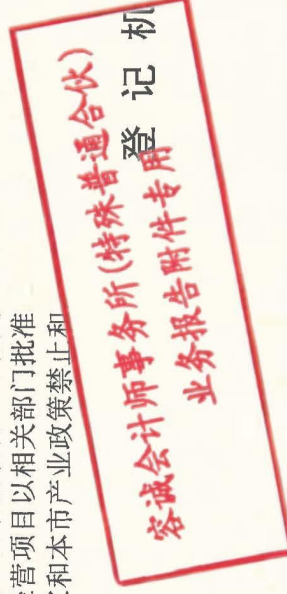 营项目以相关部门批准
和本市产业政策禁止和
容诚会计师事务所(特殊普通合伙)
业务报告附件专用
登记机